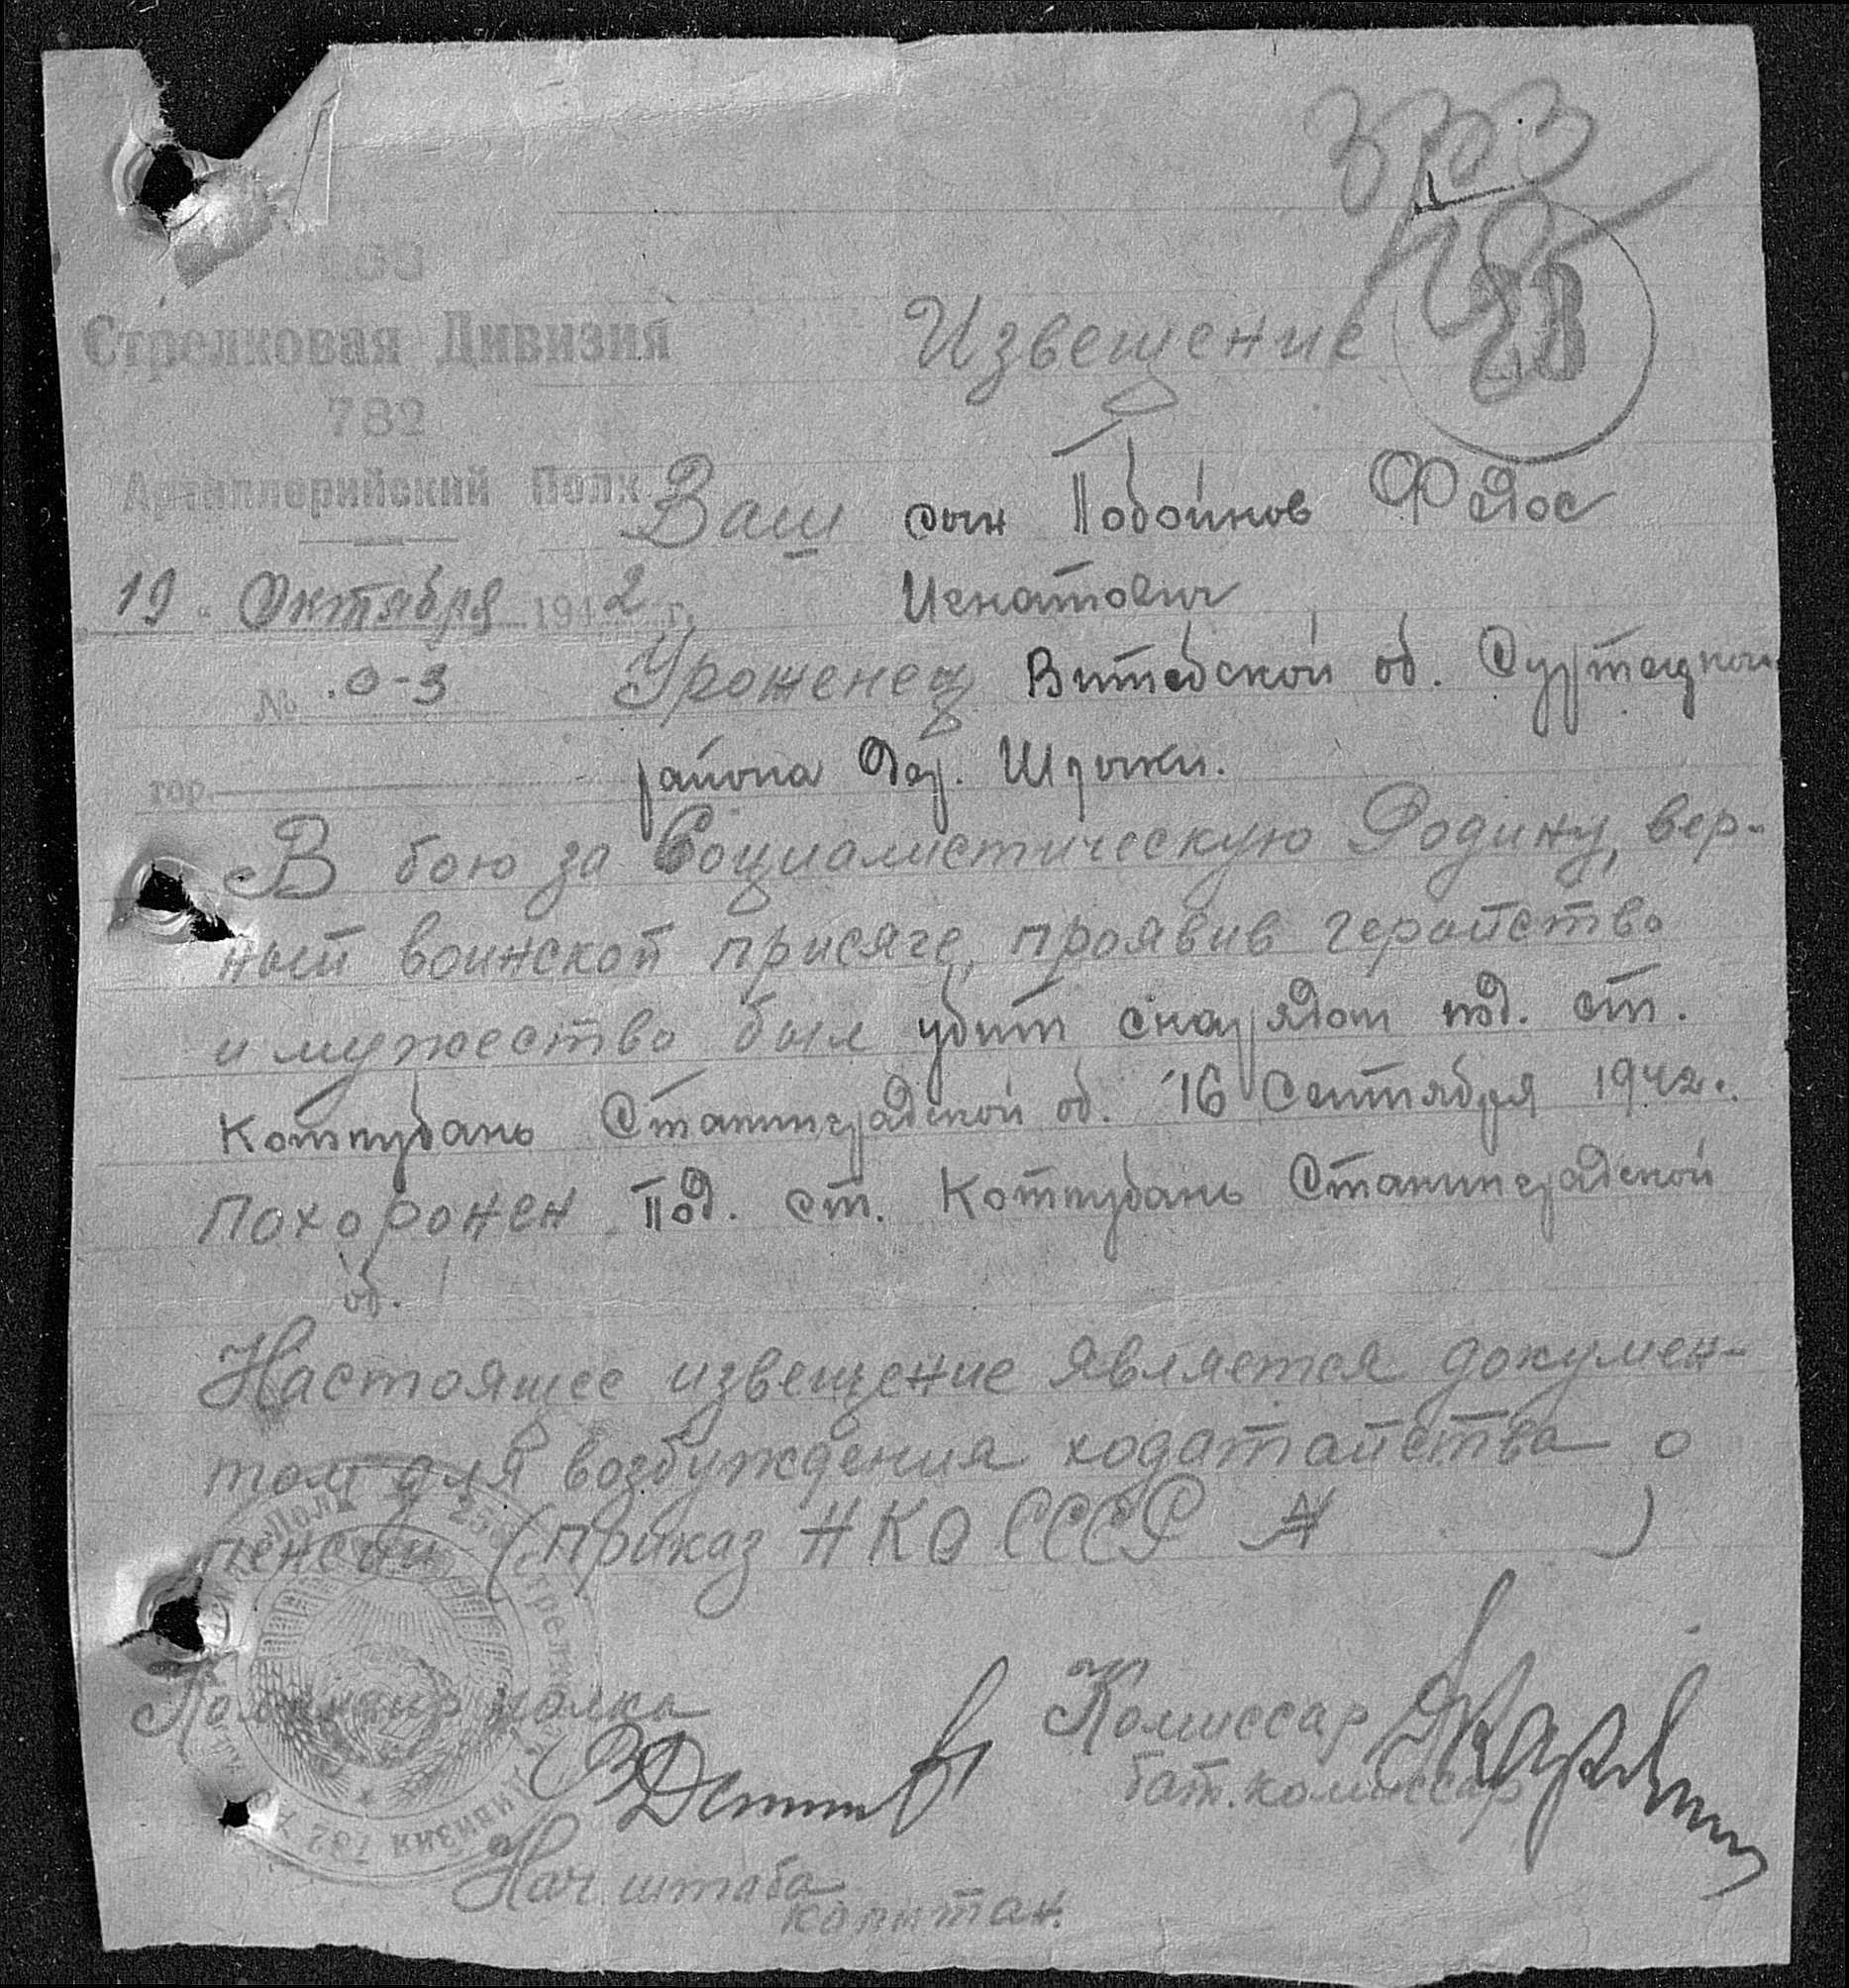 Стрелковая Дивизия
782
Артиллерийский Полк
19. Октября 1942 г.
№ 0-3
гор.
28
Извещение
Ваш сын Побойнов Федос
Игнатович
Уроженец Витебской об.
района Дер.
В бою за Социалистическую Родину, вер-
ный воинской присяге, проявив геройство
и мужество был убит снарядом под. ст.
Котлубань Сталинградской об. 16 Сентября 1942.
Похоронен Под. ст. Котлубань Сталинградской
об.
Настоящее извещение является докумен-
том для возбуждения ходатайства о
пенсии (приказ НКО СССР № )
Командир полка
Комиссар
бат. комиссар
Нач. штаба
капитан.